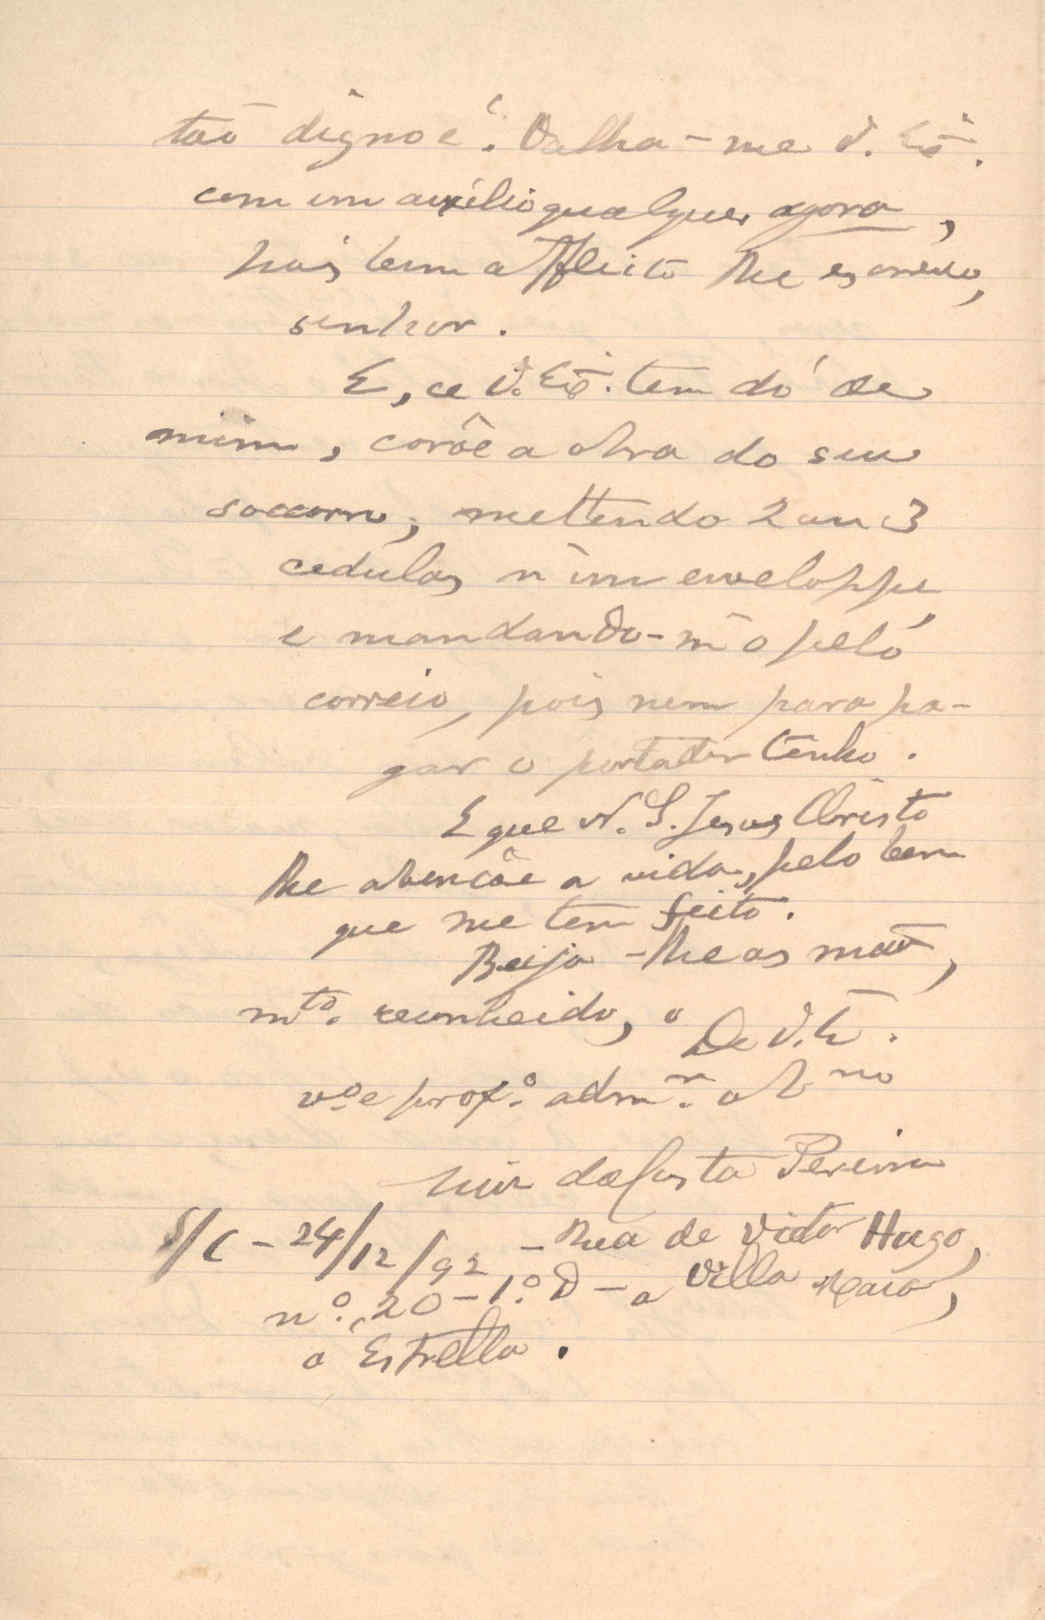 tão digno é. Valha-me V. Exª.
com um auxilio qualquer agora,
pois bem afflicto lhe escrevo,
senhor.
E, se V. Exª. tem dó de
mim, corôe a obra do seu
soccorro, mettendo 2 ou 3
cedulas n'um enveloppe
e mandando-m'o pelo
correio, pois nem para pa-
gar o portador tenho.
E que N. S. Jesus Christo
lhe abençôe a vida, pelo bem
que me tem feito.
Beija-lhe as mãos,
mtº. reconhecido, o
De V. Exª.
vº e prof.º admr. obno
Luiz da Costa Pereira
S/C - 24/12/92 - Rua de Victor Hugo,
nº. 20 - 1.º D - a Villa Maia,
á Estrella.